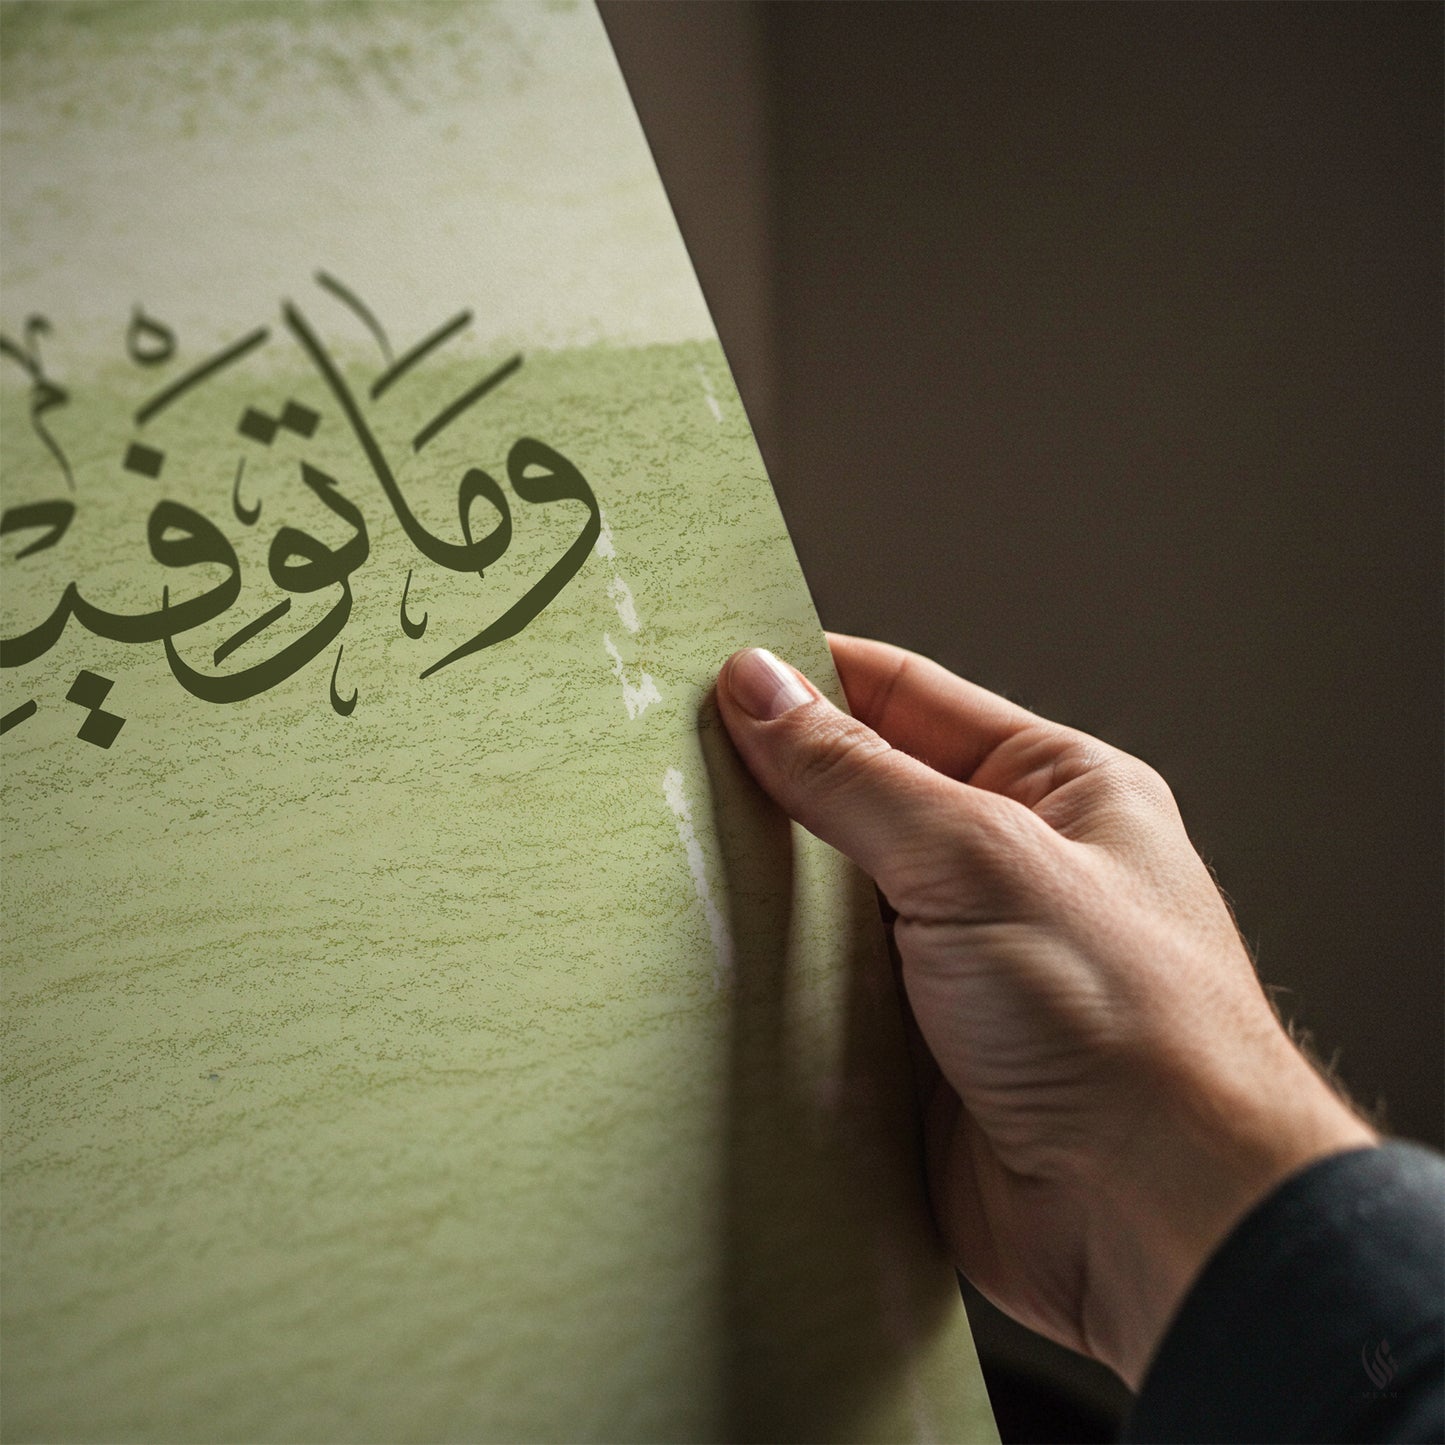 وَمَا تَوْفِيـ